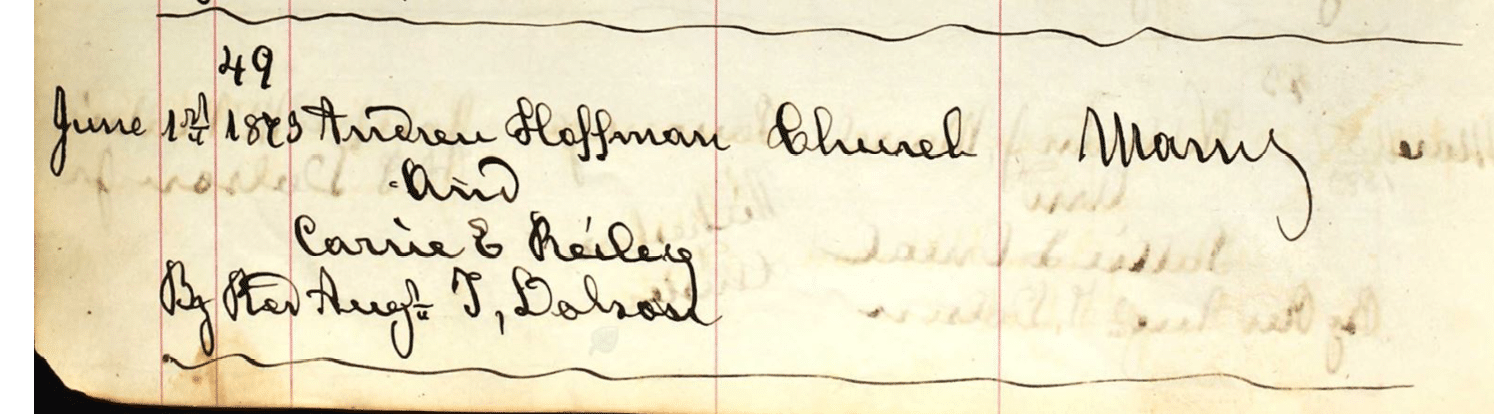 49
June 1st 1873 Andrew Hoffman Church Many
And
Carrie E Reiley
By Rev Augt T, Dolson